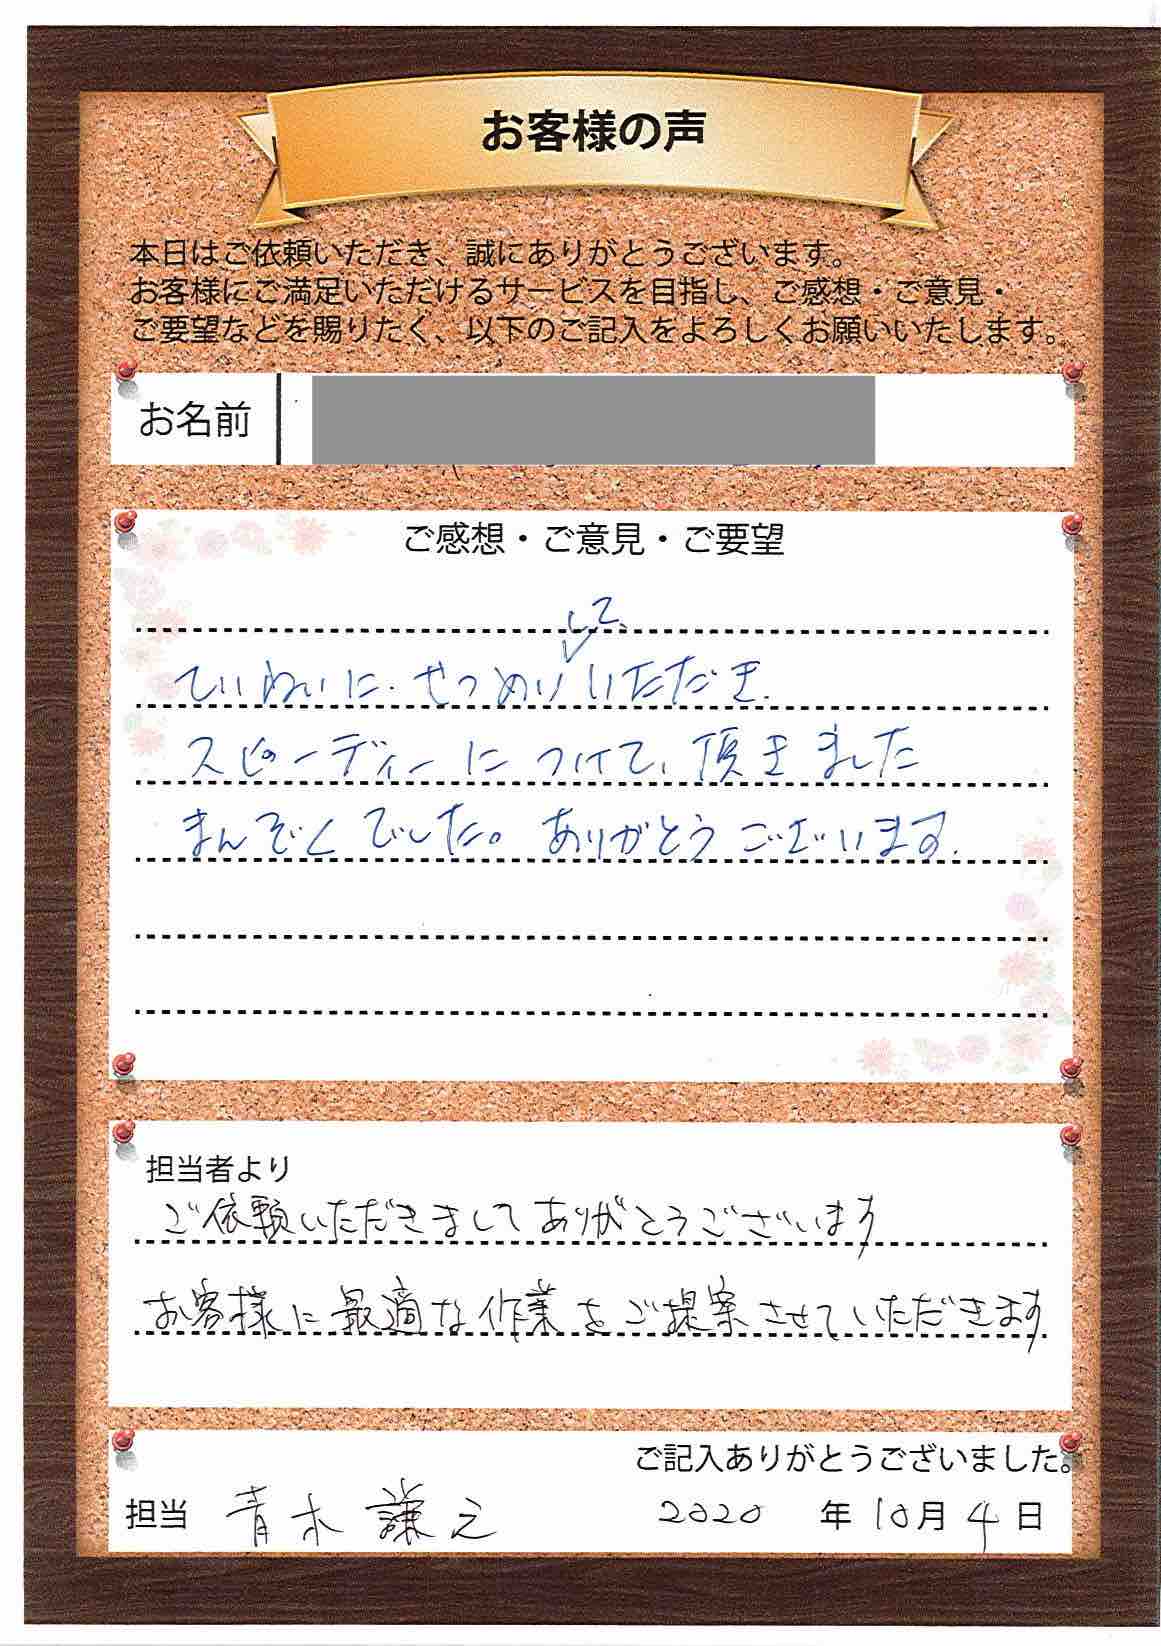 お客様の声
本日はご依頼いただき、誠にありがとうございます。
お客様にご満足いただけるサービスを目指し、ご感想・ご意見・
ご要望などを賜りたく、以下のご記入をよろしくお願いいたします。
お名前
ご感想・ご意見・ご要望
して、
ていねいに、せつめいいただき、
スピーディーにつけて、頂きました
まんぞくでした。ありがとうございます。
担当者より
ご依頼いただきましてありがとうございます
お客様に最適な作業をご提案させていただきます
ご記入ありがとうございました。
担当 青木 謙之 2020 年 10月 4 日